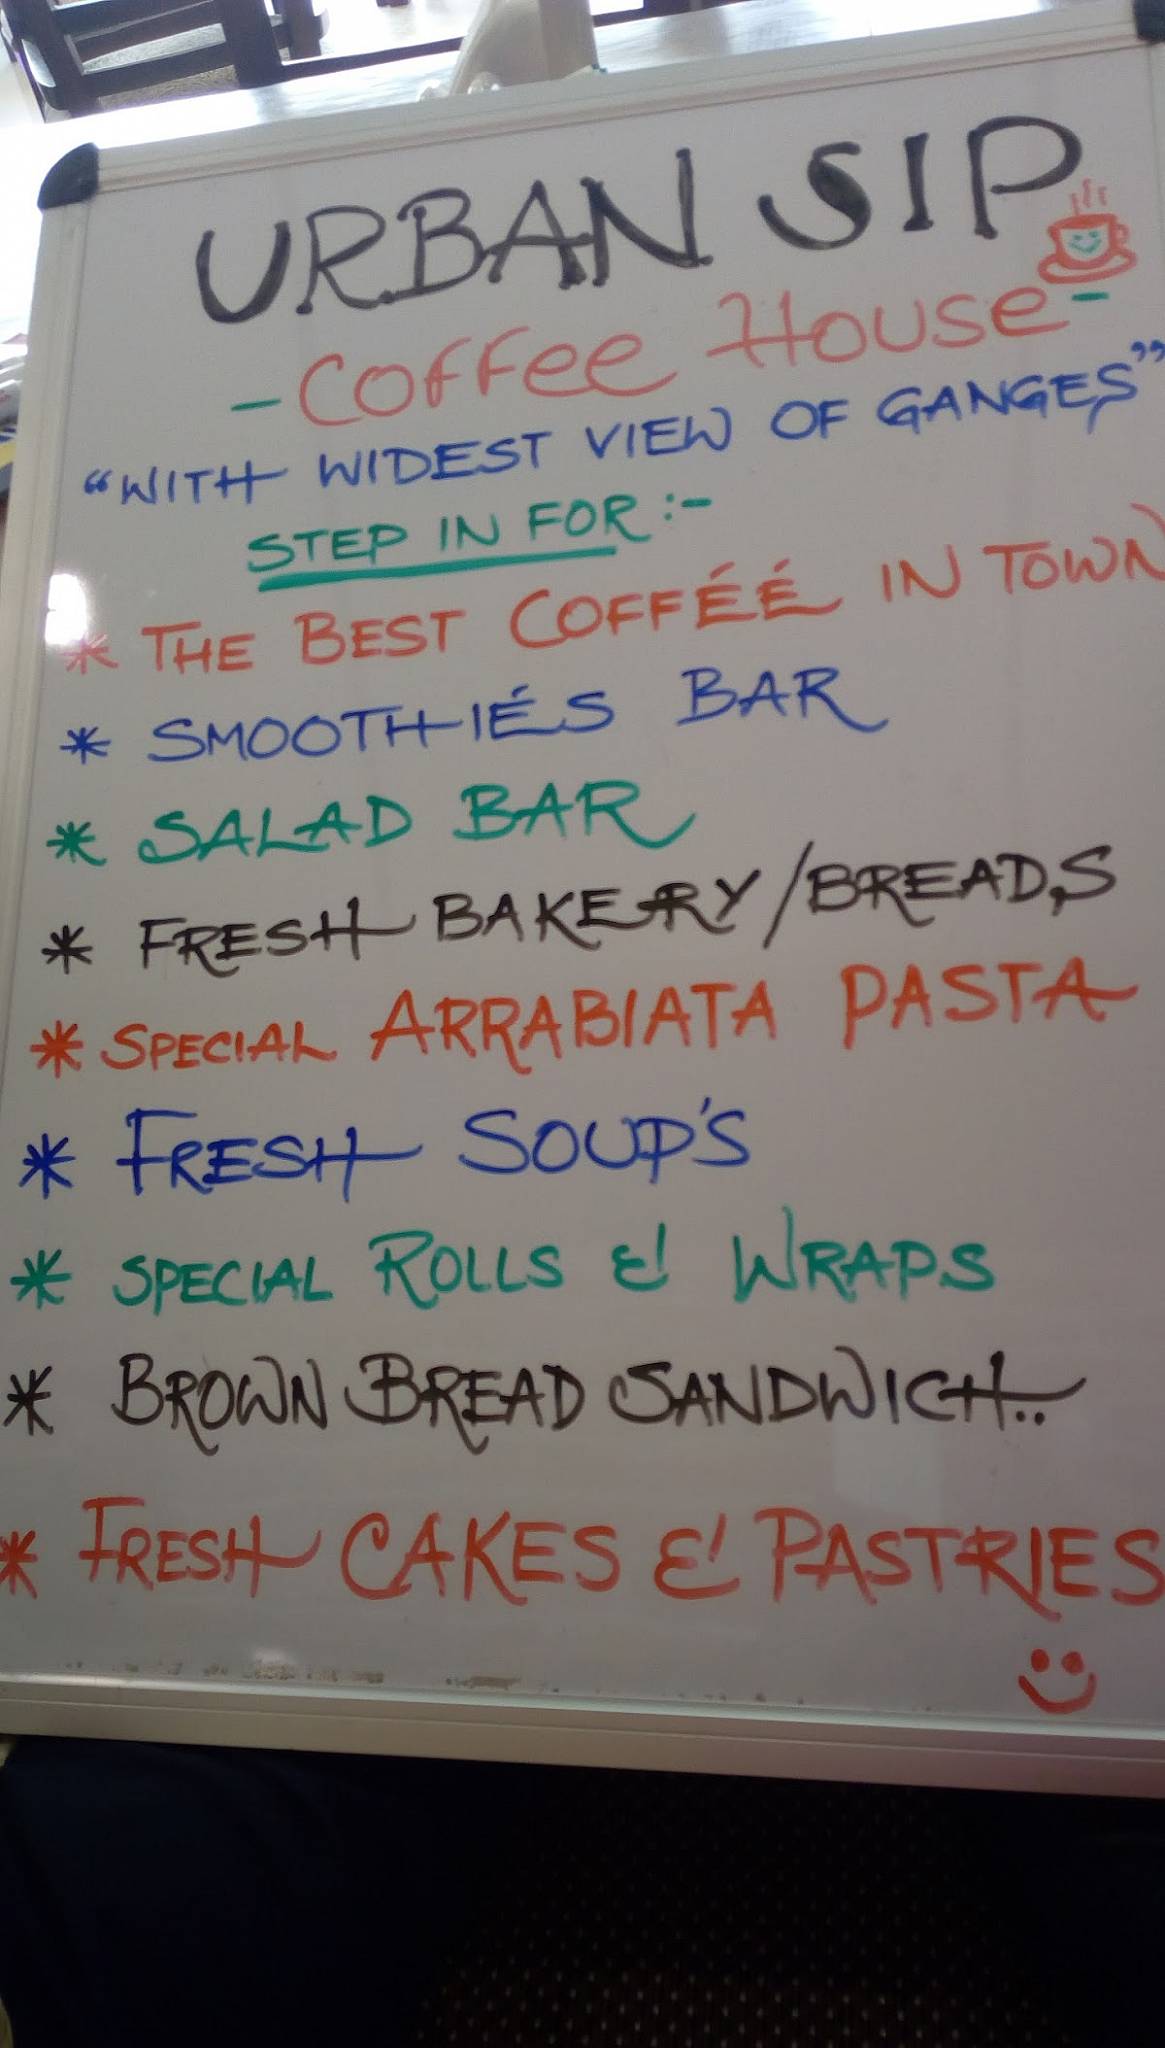 URBAN SIP
- Coffee House -
"WITH WIDEST VIEW OF GANGES"
STEP IN FOR :-
* THE BEST COFFÉÉ IN TOWN
* SMOOTHIÉS BAR
* SALAD BAR
* FRESH BAKERY/BREADS
* SPECIAL ARRABIATA PASTA
* FRESH SOUP'S
* SPECIAL ROLLS & WRAPS
* BROWN BREAD SANDWICH..
* FRESH CAKES & PASTRIES